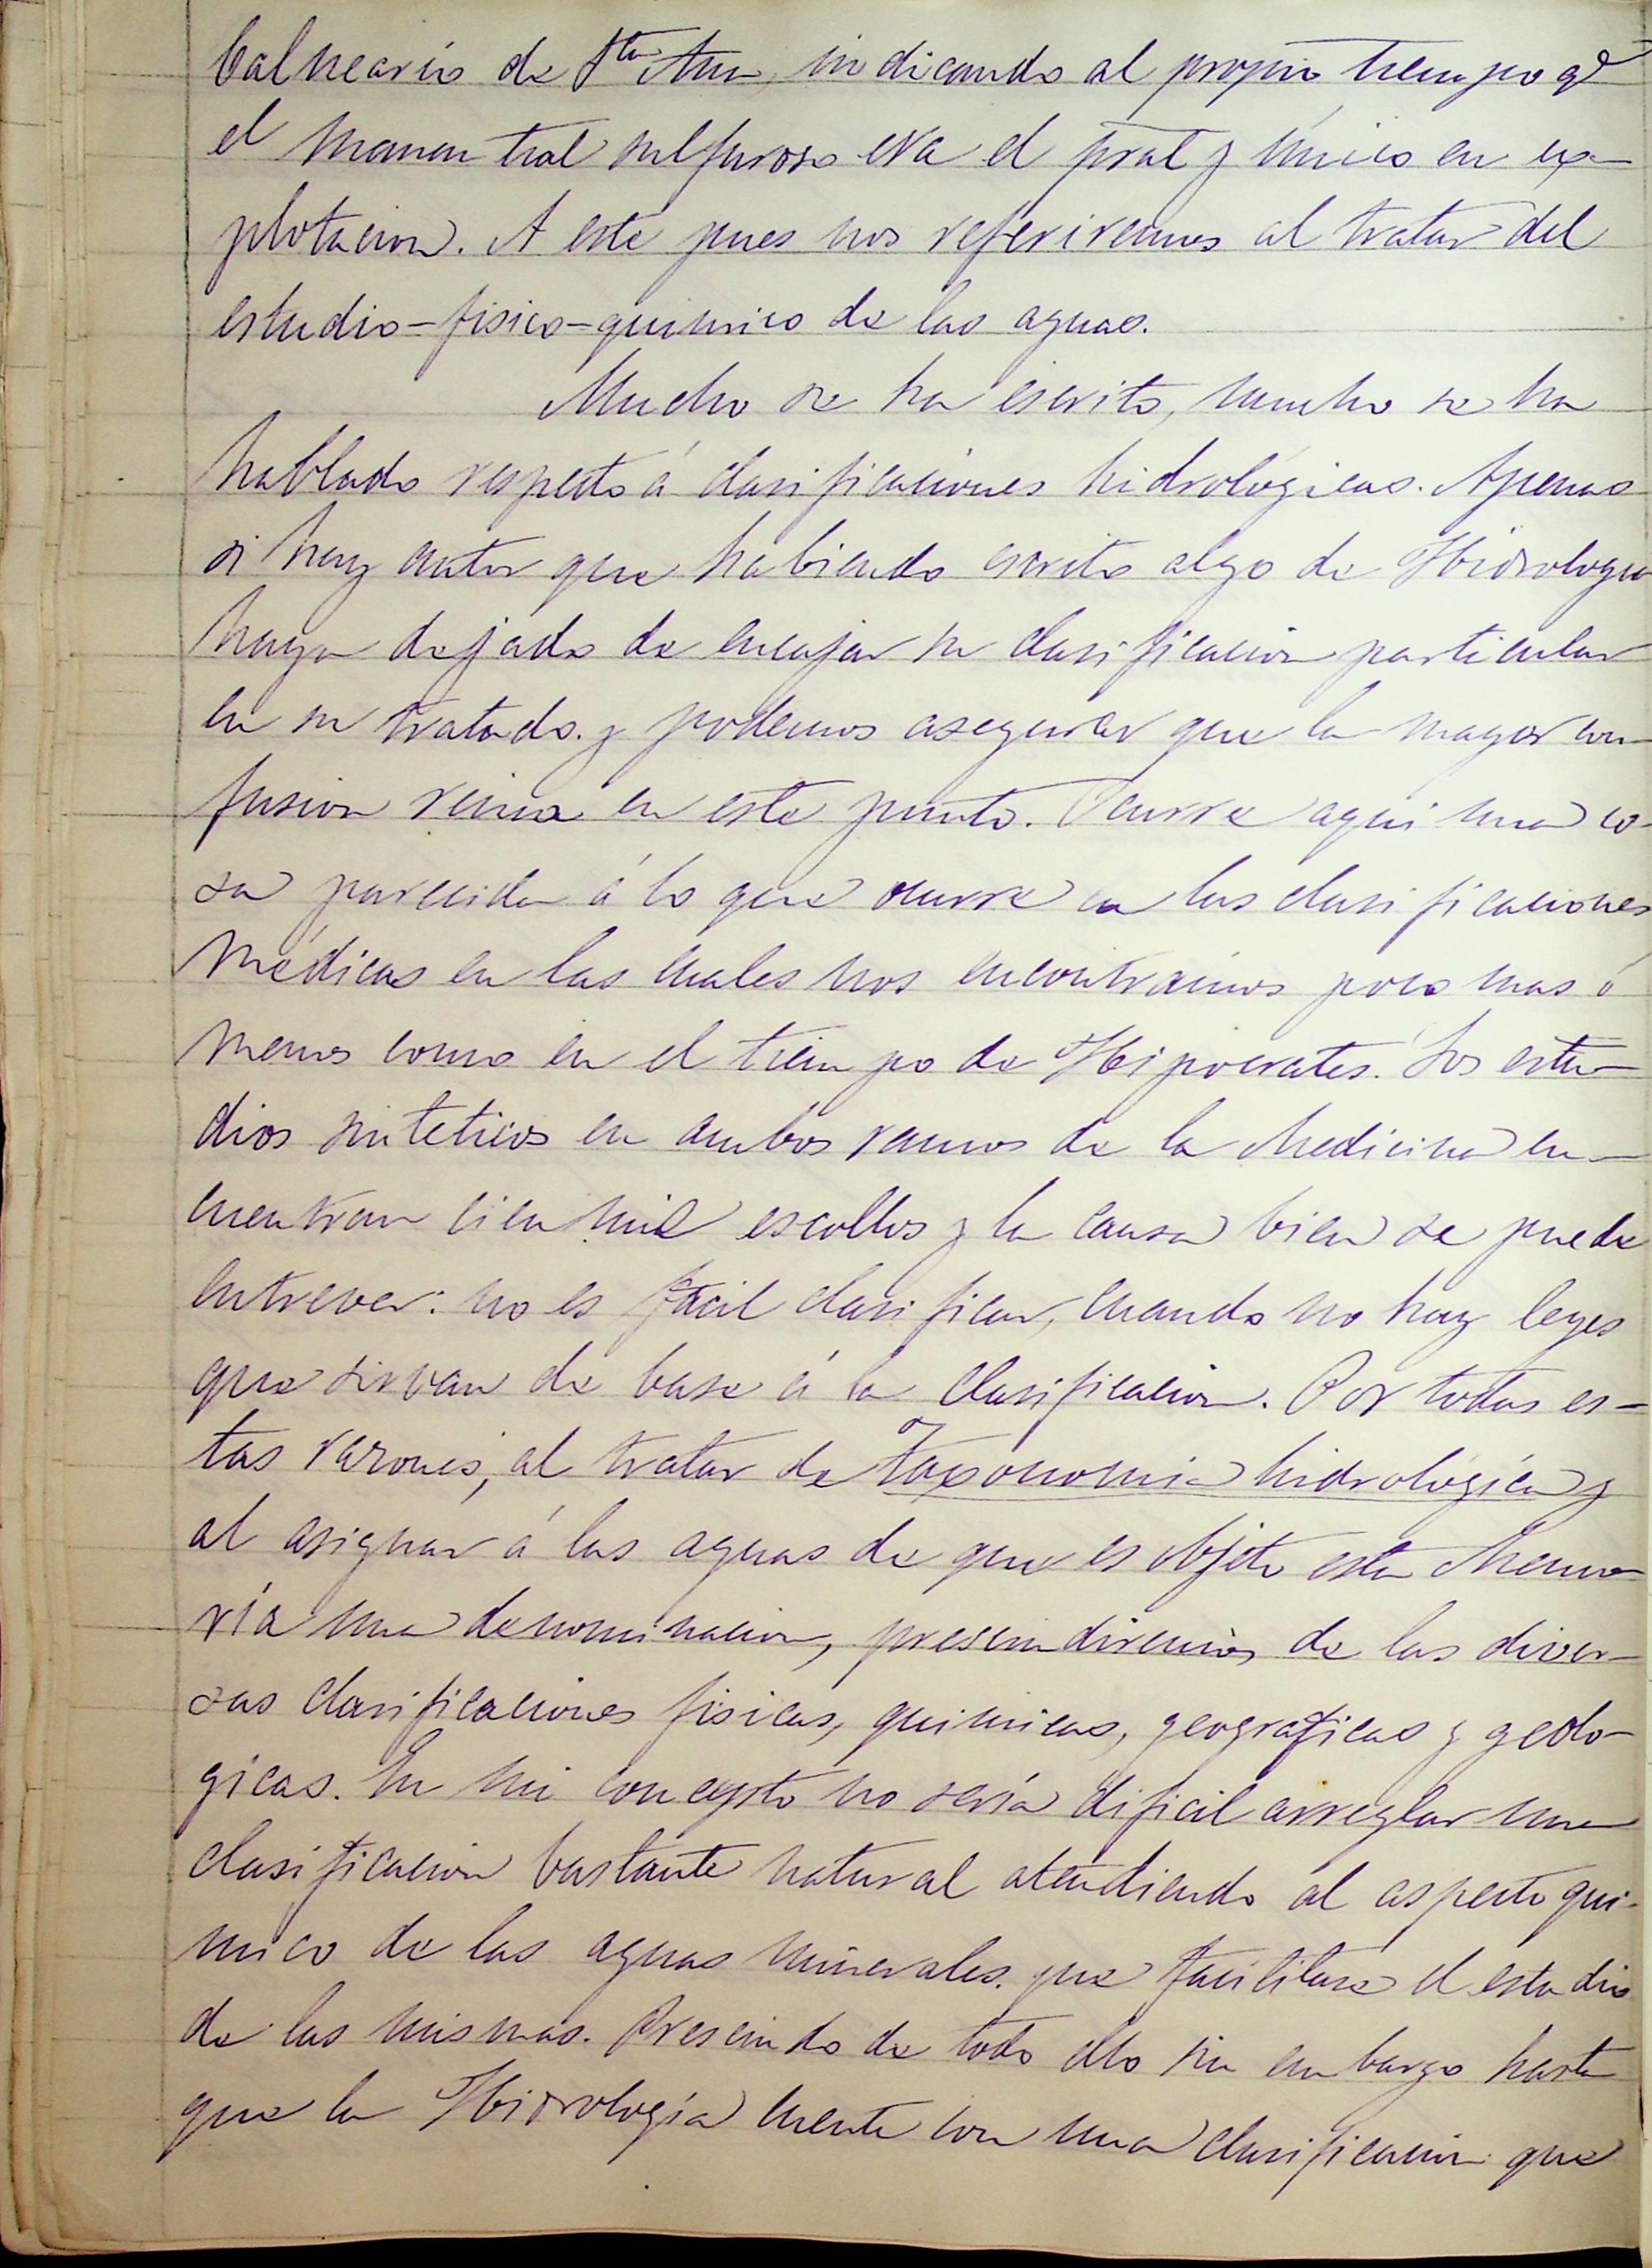 balneario de Sta Ana, indicando al propio tiempo qe
el manantial sulfuroso era el pral y único en ex-
plotacion. A este pues nos referiremos al tratar del
estudio-fisico-quimico de las aguas.
Mucho se ha escrito, mucho se ha
hablado respecto á clasificaciones hidrológicas. Apenas
si hay autor que habiendo escrito algo de Hidrologia
haya dejado de encajar su clasificacion particular
en su tratado. y podemos asegurar que la mayor con-
fusion reina en este punto. Ocurre aqui una co-
sa parecida á lo que ocurre en las clasificaciones
Médicas en las cuales nos encontramos poco mas ó
menos como en el tiempo de Hipocrates. Los estu-
dios sinteticos en ambos ramos de la Medicina en-
cuentran cien mil escollos y la causa bien se puede
entrever: no es fácil clasificar, cuando no hay leyes
que sirvan de base á la clasificacion. Por todas es-
tas razones, al tratar de Taxonomia hidrológica y
al asignar á las aguas de que es objeto esta Memo-
ria una denominacion, prescindiremos de las diver-
sas clasificaciones fisicas, quimicas, geograficas y geolo-
gicas. En mi concepto no seria dificil arreglar una
clasificacion bastante natural atendiendo al aspecto qui-
mico de las aguas minerales. que facilitase el estudio
de las mismas. Prescindo de todo ello sin embargo hasta
que la Hidrología cuente con una clasificacion que